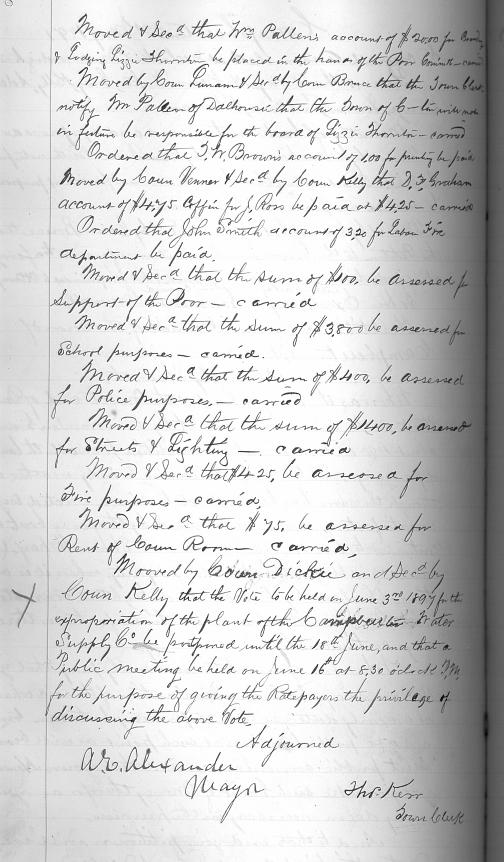 Moved & Sec.d that Wm Pallen's account of $20.00 for Boarding
& Lodging Lizzie Thornton be placed in the hands of the Poor Committe - carried
Moved by Coun Lunam & Sec.d by Coun Bruce that the Town Clerk
notify Wm Pallen of Dalhousie that the Town of C-ton will not
in future be responsible for the board of Lizzie Thornton - carried
Ordered that T. W. Brown's account of 1.00 for printing be paid
Moved by Coun Venner & Sec.d by Coun Kelly that D. F Graham
account of $4.75 Coffin for J. Ross be paid at $4.25 - carried
Ordered that John Smith account of 3.20 for Labor Fire
department be paid.
Moved & Sec.d that the sum of $100, be assessed for
Support of the Poor - carried
Moved & Sec.d that the sum of $3,800 be assessed for
School purposes - carried.
Moved & Sec.d that the sum of $400, be assessed
for Police purposes, - carried
Moved & Sec.d that the sum of $1400, be assessed
for Streets & Lighting - carried
Moved & Sec.d that $425, be assessed for
Fire purposes - carried,
Moved & Sec.d that $75, be assessed for
Rent of Coun Room - carried,
Mooved by Coun Dickie and Sec.d by
X Coun Kelly that the Vote to be held on June 3rd 1897 for the
expropriation of the plant of the Campbellton Water
Supply Co be postponed until the 18th June, and that a
Public meeting be held on June 16th at 8,30 o'clock P.M.
for the purpose of giving the Ratepayers the privilege of
discussing the above Vote
Adjourned
Alexander
Mayor
Thos. Kerr
Town Clerk